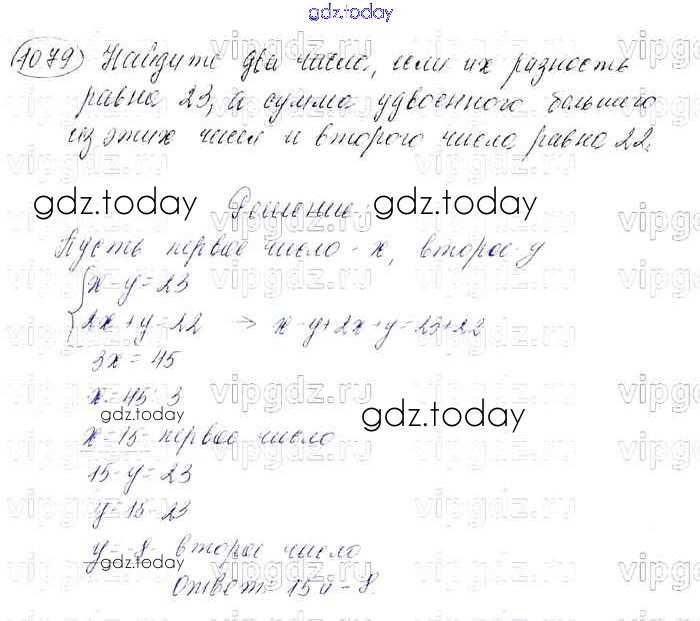 gdz.today
1079 Найдите два числа, если их разность
равна 23, а сумма удвоенного большего
из этих чисел и второго числа равна 22.
Решение:
Пусть первое число - x, второе - y
x - y = 23
2x + y = 22 → x - y + 2x + y = 23 + 22
3x = 45
x = 45 : 3
x = 15 - первое число
15 - y = 23
y = 15 - 23
y = -8 - второе число
Ответ: 15 и -8.
gdz.today
gdz.today
gdz.today
gdz.today
gdz.today
vipgdz.ru